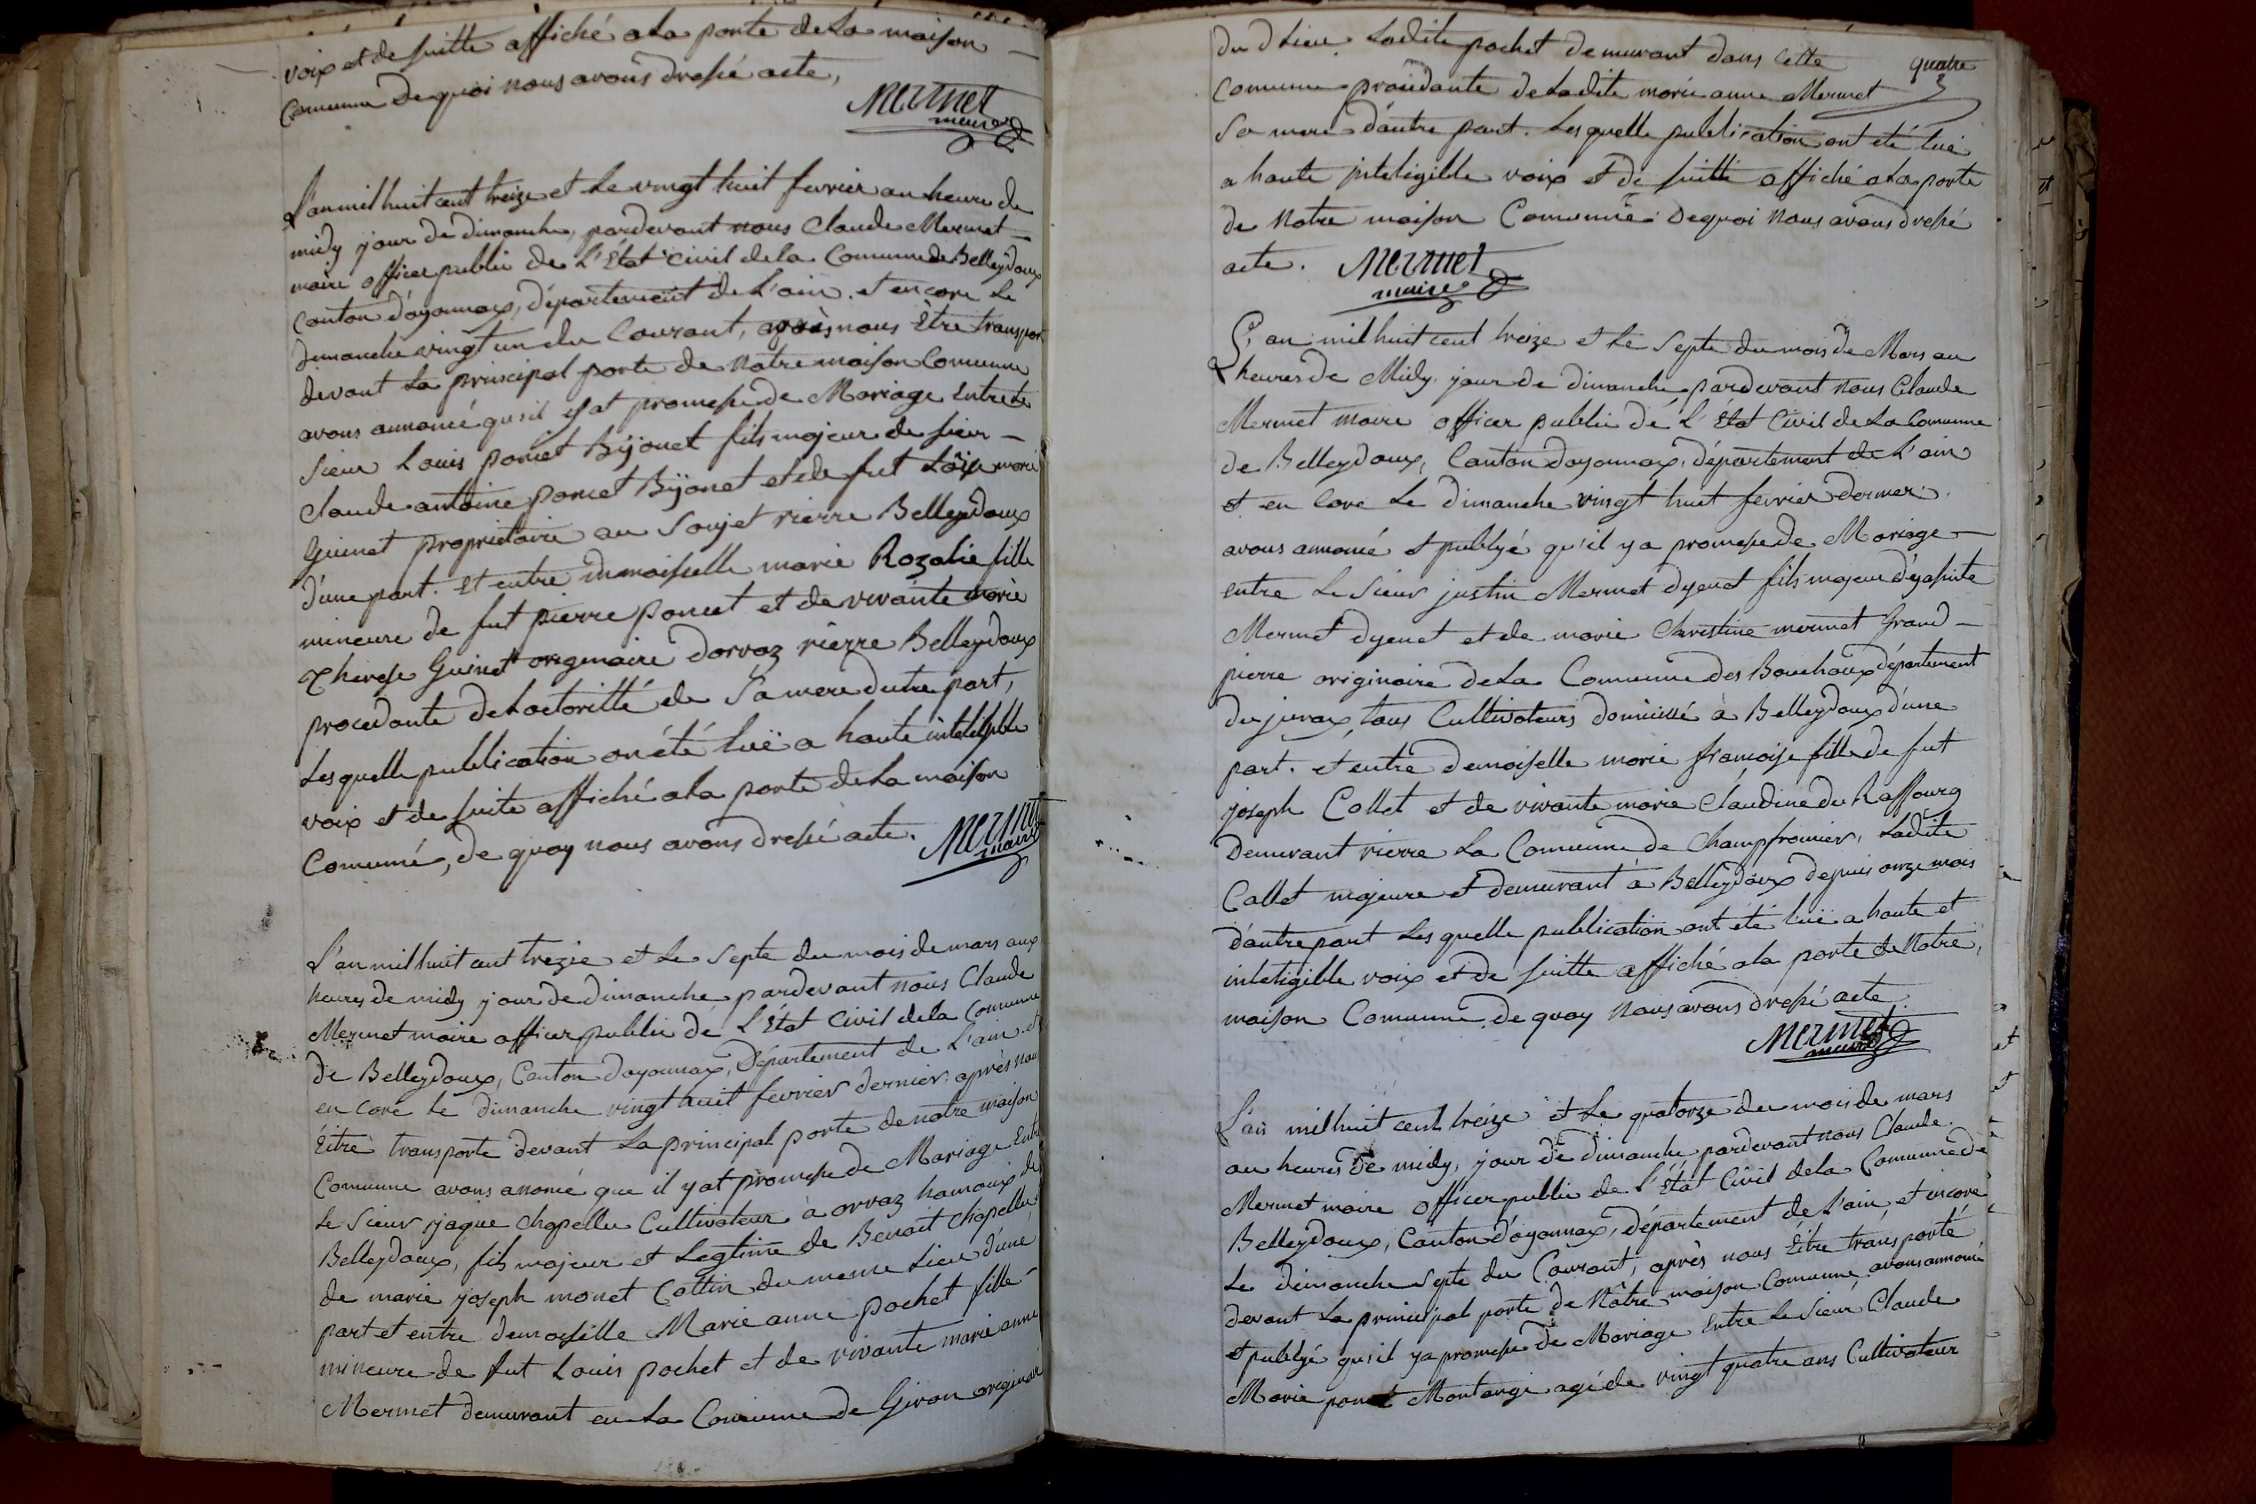 voix et de suitte affiché a la porte de la maison
Comune De quoi nous avons dressé acte,
Mermet
maire
L'an mil huit cent treize et le vingt huit fevrier au heure de
midy jour de dimanche, pardevant nous Claude Mermet
maire officer public de L'Etat Civil dela Comune de Belleydoux
Canton d'oyonnax, département de L'ain. et encore Le
dimanche vingt un du Courant, après nous Être transpor
devant La principal porte de Notre maison Comune
avons annoncé qu'il yat promesse de Mariage Entre le
Sieur Louis poncet Bijouet fils majeur de sieur
Claude antoine poncet Bijonet et de fut Loïse marie
Guinet propriétaire au Sonjet rierre Belleydoux
d'une part. Et entre demoiselle marie Rozalie fille
mineure de fut pierre poncet et de vivante marie
Therese Guinet origenaire dorvaz rierre Belleydoux
procedante de Lactoritté de Sa mere dutre part,
Les quelle publication on été luë a haute intelisible
voix et de suite affiché ala porte de La maison
Comuné, de quoy nous avons dressé acte.
Mermet
maire
L'an mil huit cent trezie et Le Septe du mois de mars aux
heures de midy jour de dimanche pardevant nous Claude
Mermet maire officer public de L'Etat Civil dela Comune
de Belleydoux, Canton doyonnax, Département de L'ain et
en core le dimanche vingt huit fevrier dernier après nou
Êitre transporte devant La principal porte de notre maison
Comune avons anoncé que il yat promesse de Mariage Entre
Le Sieur jaque chapellu Cultivateur à orvaz hamaux de
Belleydoux, fils majeur et Legtime de Benoit chapellu
de marie joseph monet Cottin du meme Lieu d'une
part et entre demoiselle Marie anne pochet fille
mineure de fut Louis pochet et de vivante marie anne
Mermet demurant en La Comune de Giron originai
du d Lieu. Ladite pochet demurant dans cette
quatre
Comune procedante de Ladite marie anne Mermet
Sa mere d'autre part. Les quelle publication ont été luë
a haute inteligible voix et de suitte affiché ala porte
de Notre maison Comunne. De quoi nous avons dressé
acte.
Mermet
maire
L'an mil huit cent treize et le Septe du mois de Mars au
heures de Midy. jour de dimanche pardevant nous Claude
Mermet maire officer public de L'État Civil de La Comune
de Belleydoux, Canton doyonnax, département de L'ain
et en core le dimanche vingt huit fevrier dernier.
avons annoncé et publyé qu'il ya promesse de Mariage
entre Le Sieur justin Mermet dyenet fils majeur d'yasinte
Mermet dyenet et de marie Christine mermet Grand
pierre originaire de La Comune des Bouchoux département
du jurax, tous Cultivateurs domicilié à Belleydoux d'une
part. et entre demoiselle marie francoise fille de fut
joseph Collet et de vivante marie Claudine du Raffourg
Demurant rierre La Comune de Champfromier, Ladite
Collet majeure et demurant à Belleydoux depuis onze mois
d'autre part Les quelle publication ont été luë a haute et
inteligible voix et de suitte affiché ala porte de Notre,
maison Comune. de quoy Nous avons dressé acte.
Mermet
maire
L'an mil huit cent treize et Le quatorze du mois de mars
au heures de midy, jour de dimanche pardevant nous Claude
Mermet maire officer public de L'État Civil dela Comune de
Belleydoux, Canton d'oyonnax, département de L'ain et encore
Le dimanche Septe du Courant, après nous Être transporté
devant La principal porte de Nôtre maison Comune avons annoncé
et publyé qu'il ya promesse de Mariage Entre Le Sieur Claude
Marie poncet Montange agé de vingt quatre ans Cultivateur